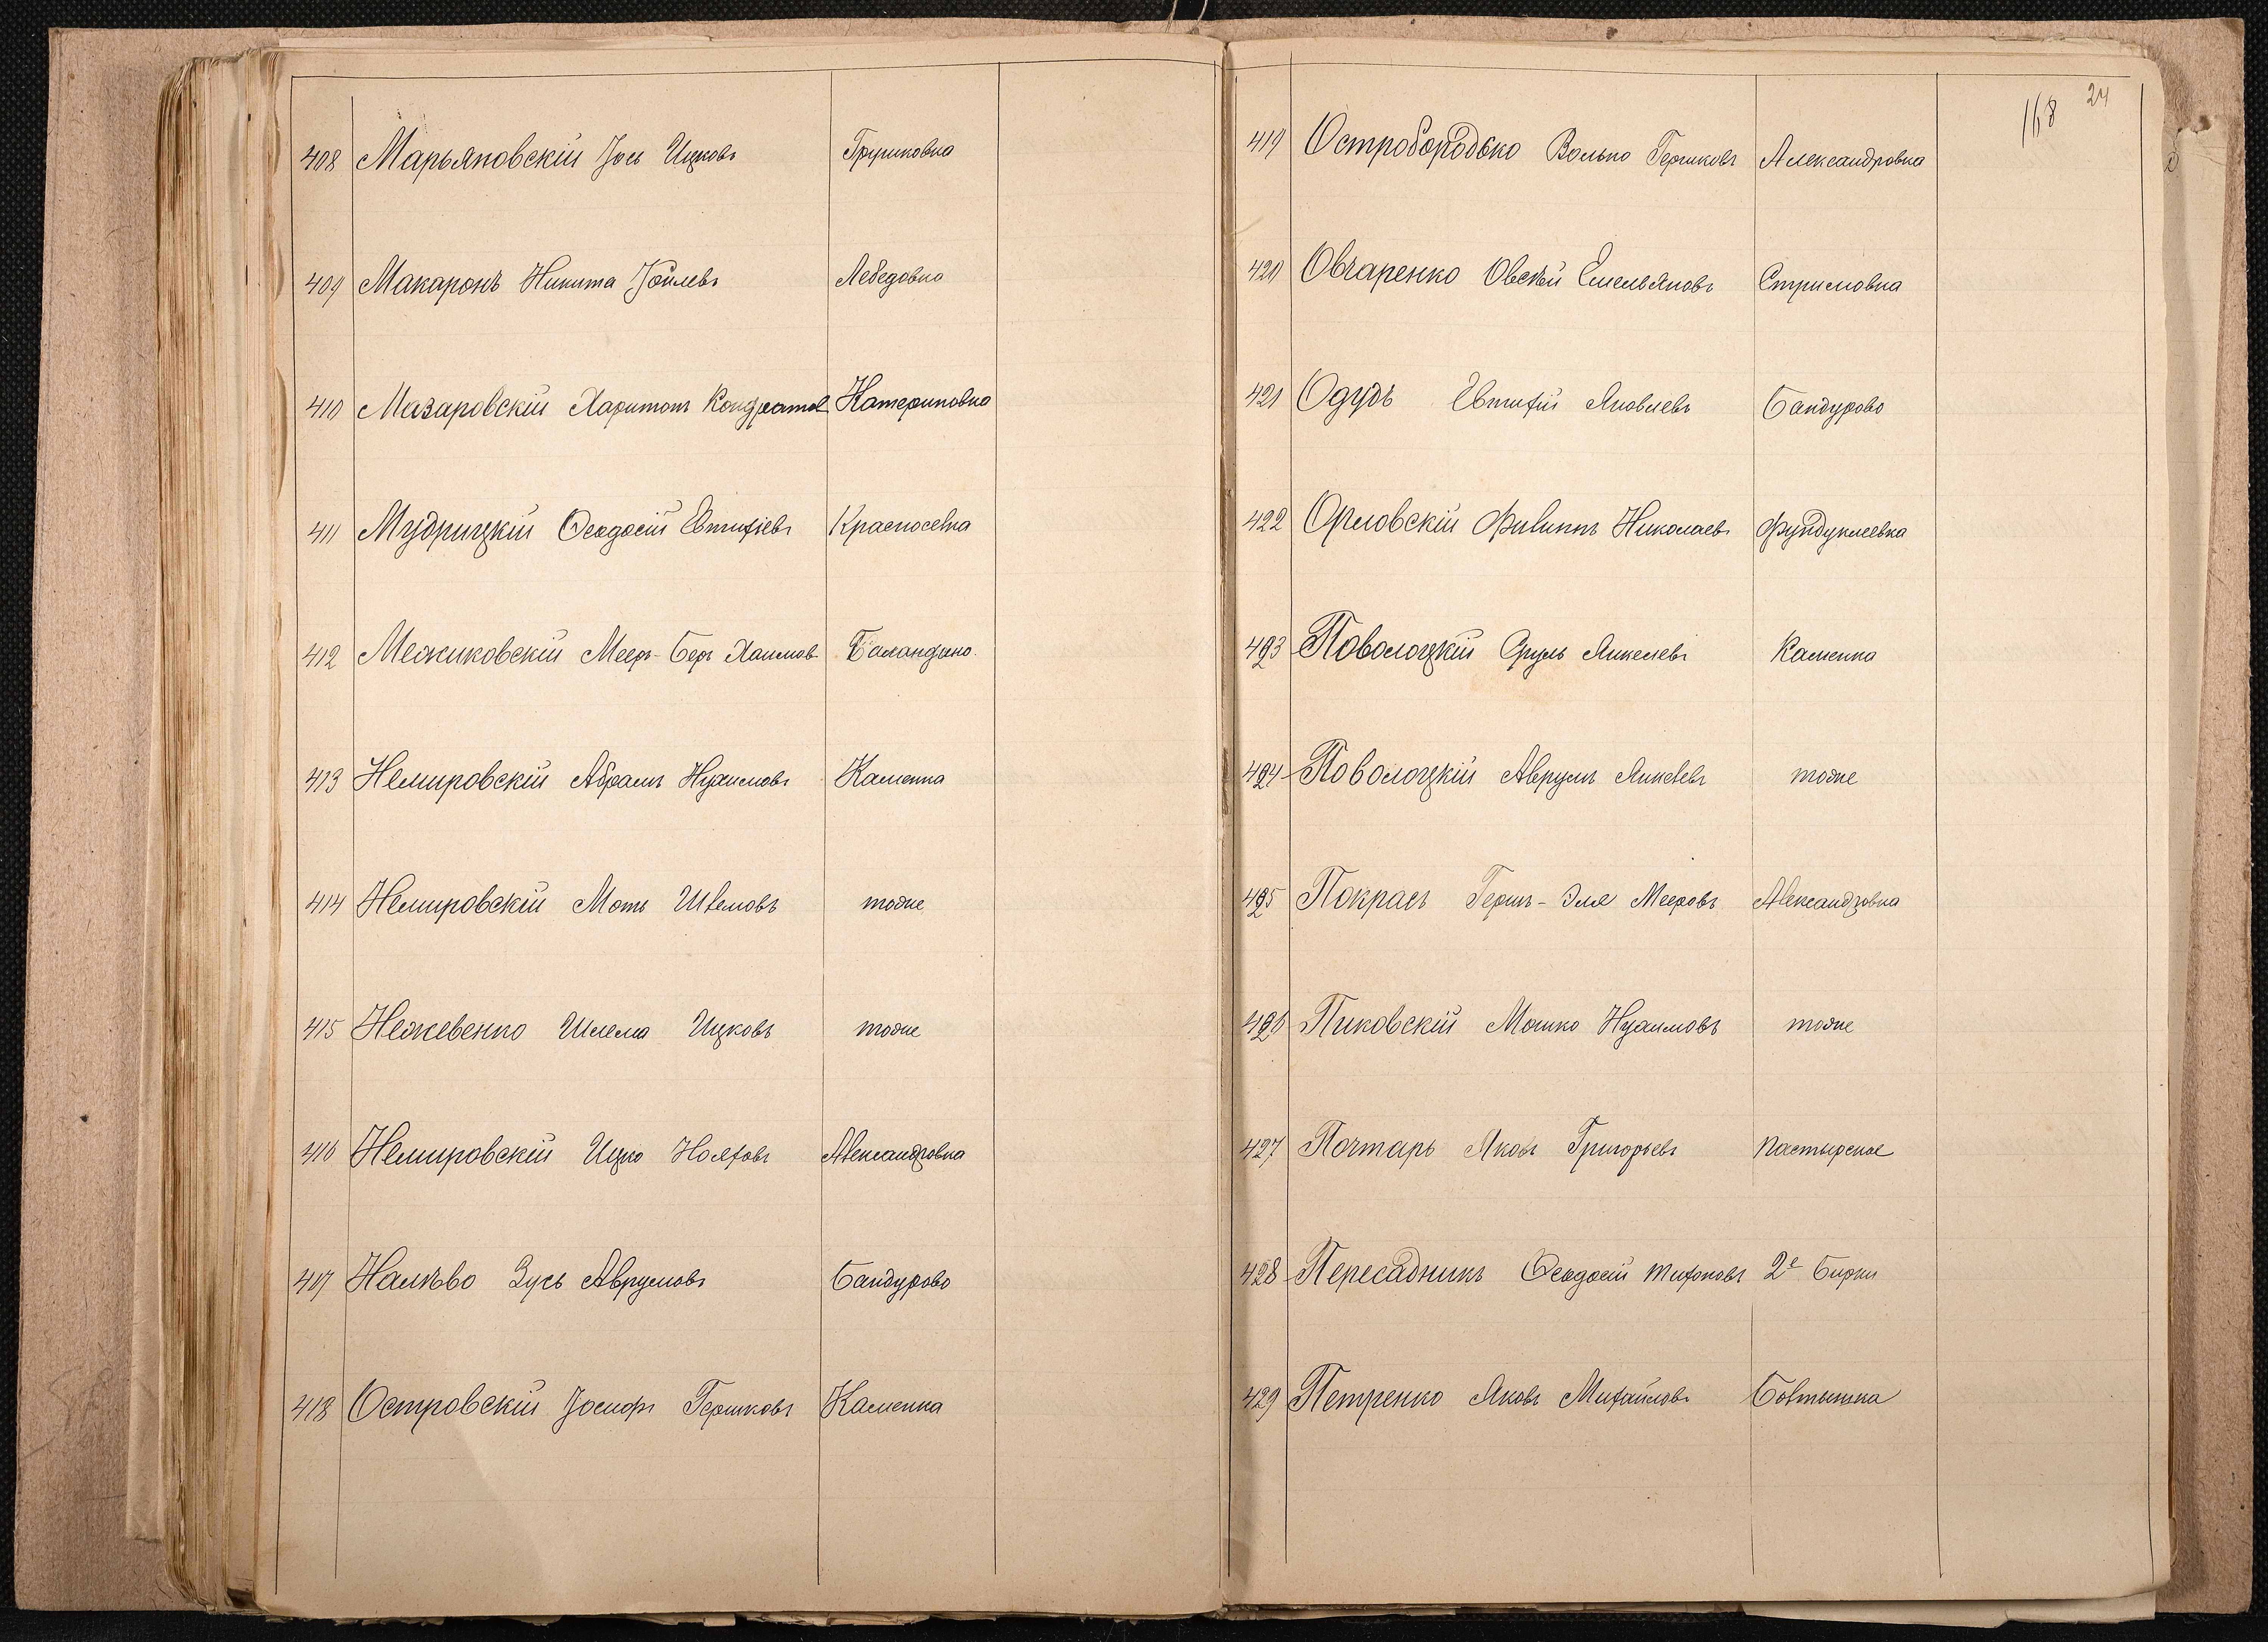 408 Марьяновскій Іось Ицковъ Грушковка
409 Макаронъ Никита Іойлевъ Лебедовка
410 Мазаровскій Харитонъ Кондратов Катериновка
411 Мудрицкій Ѳеодосій Евтихіевъ Красноселка
412 Межиковскій Меер-Беръ Хаимов Баландино.
413 Немировскій Абрамъ Нухимовъ Каменка
414 Немировскій Моть Шлемовъ тоже
415 Нежевенко Шлема Ицковъ тоже
416 Немировскій Ицко Нояховъ Александровка
417 Налѣво Зусь Аврумовъ Бандурово
418 Островскій Іосифъ Гершковъ Каменка
168 24
419 Остробородько Волько Гершковъ Александровка
420 Овчаренко Овсѣй Емельяновъ Стримовка
421 Одудъ Евтифій Яковлевъ Бандурово
422 Орловскій Филиппъ Николаевъ Фундуклеевка
423 Поволоцкій Сруль Янкелевъ Каменка
424 Поволоцкій Аврумъ Янкелевъ тоже
425 Покрасъ Герш-Эля Мееровъ Александровка
426 Пиковскій Мошко Нухимовъ тоже
427 Почтарь Яковъ Григорьевъ Пастырское
428 Пересадникъ Ѳеодосій Тихоновъ 2е Бирки
429 Петренко Яковъ Михайловъ Болтышка